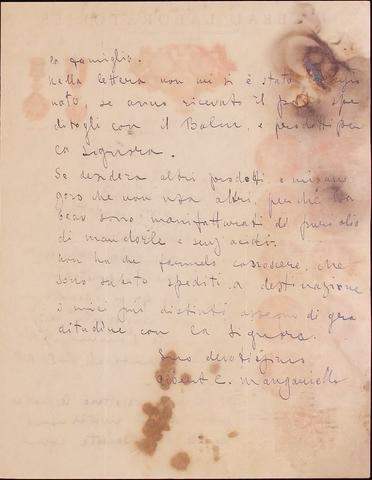 la famiglia.
nella lettera non mi si è stato
nato, se anno ricevuto il
ditogli con il Balm, e prodotti per
la Signora.
Se desidera altri prodotti, e
gero che non usa altri, perchè
beau sono manifatturati di puro olio
di mandorle e senz acidi.
non ha che farmelo conoscere, che
sono subito spediti a destinazione
i miei più distinti ossequi di gra
ditudine con la Signora.
Suo devotissimo
C. Manganiello